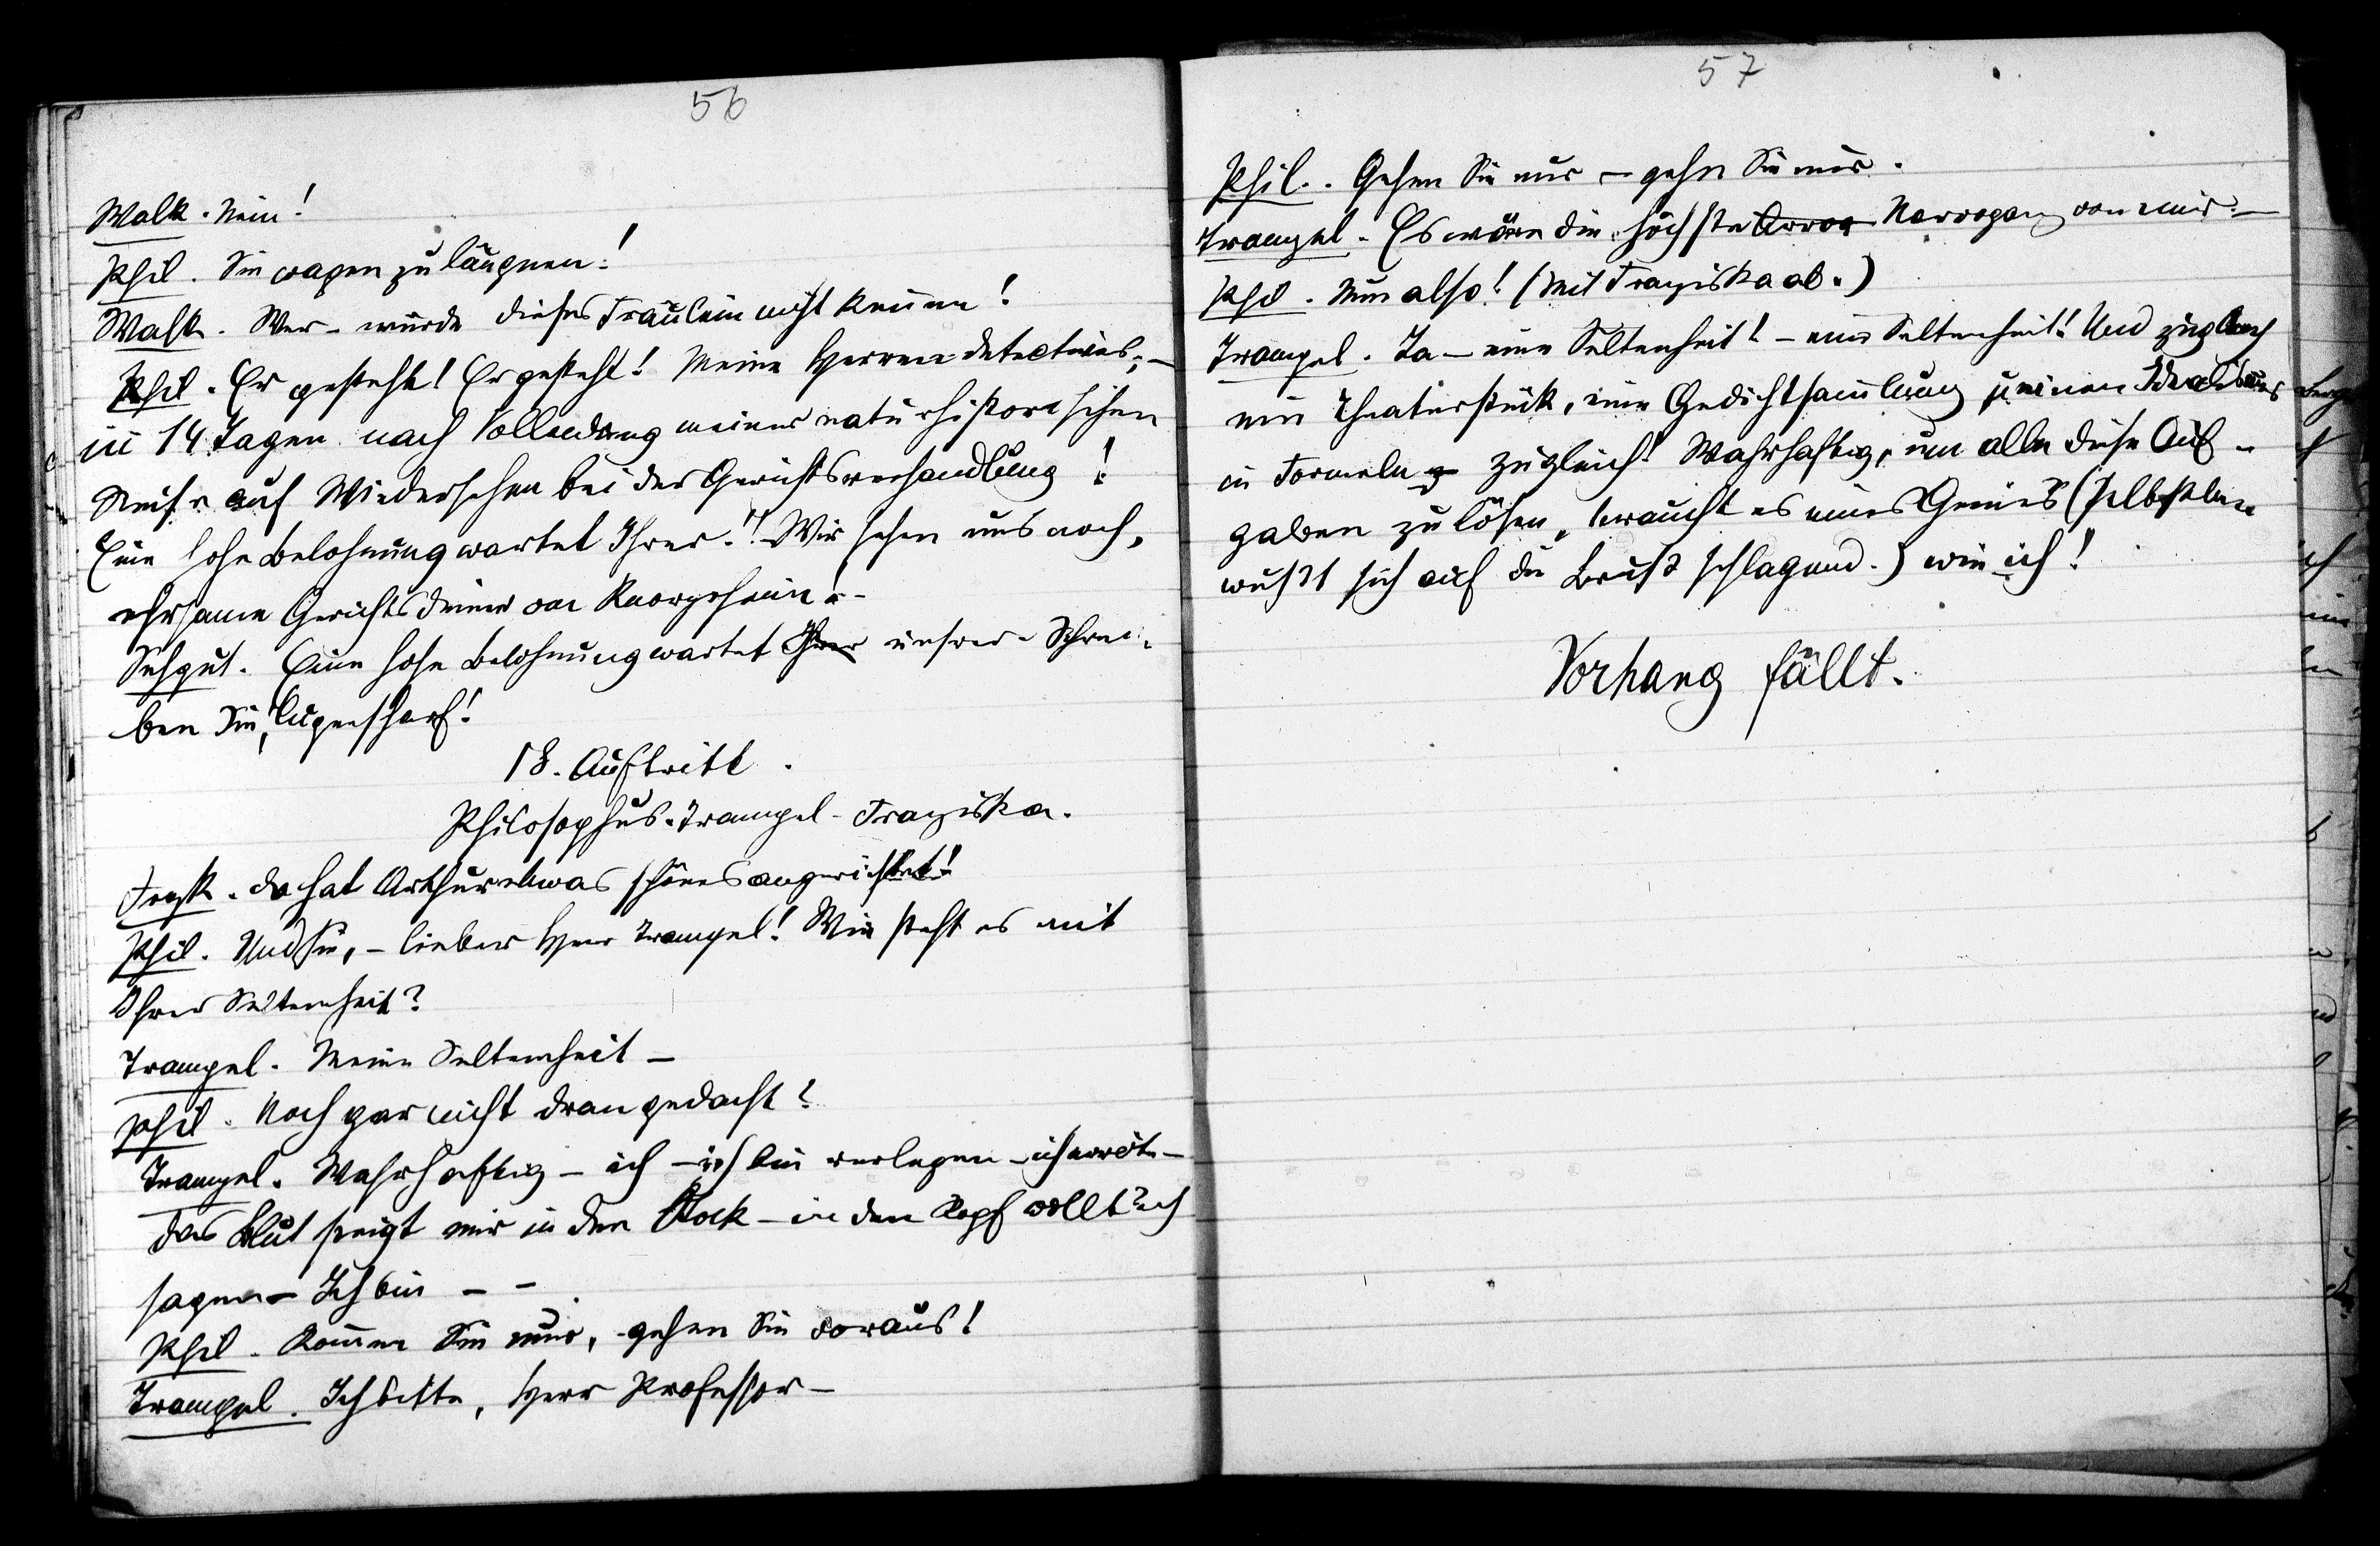 56
Walk. Nein!
Phil. Sie wagen zu läugnen!
Walk. Wer - würde dieses Fräulein nicht kennen!
Phil. Er gesteht! Er gesteht! Meine Herren detectives, -
in 14 Tagen nach Vollendung meiner naturhistorischen
Reise auf Wiedersehen bei der Gerichtsverhandlung!
Eine hohe Belohnung wartet Ihrer! Wir sehen uns noch,
ehrsame Gerichtsdiener von
Sehgut. Eine hohe Belohnung wartet Ihrer unser. Schrei-
ben Sie, Augenscharf!
18. Auftritt.
Philosophus. Trampel - Franziska.
Frzsk. Da hat Arthur etwas schönes angerichtet!
Phil. Und Sie, - lieber Herr Trampel! Wie steht es mit
Ihrer Seltenheit?
Trampel. Meine Seltenheit -
Phil. Noch gar nicht dran gedacht?
Trampel. Wahrhaftig - ich - ich bin verlegen - ich erröte -
das Blut steigt mir in den Rock - in den Kopf wollt' ich
sagen - Ich bin - -
Phil. Kommen Sie nur, gehen Sie voraus!
Trampel. Ich bitte, Herr Professor -
57
Phil. Gehen Sie nur - gehn Sie nur.
Trampel. Es wäre die höchste Arroa Narrogang von mir. -
Phil. Nun also! (Mit Franziska ab.)
Trampel. Ja - eine Seltenheit! - eine Seltenheit! Und zugleich
ein Theaterstück, eine Gedichtsammlung, einen Idealismus
in Formeln zugleich! Wahrhaftig, um alle diese Auf-
gaben zu lösen, braucht es eines Genies (selbstbe-
wußt sich auf die Brust schlagend.) wie ich!
Vorhang fällt.